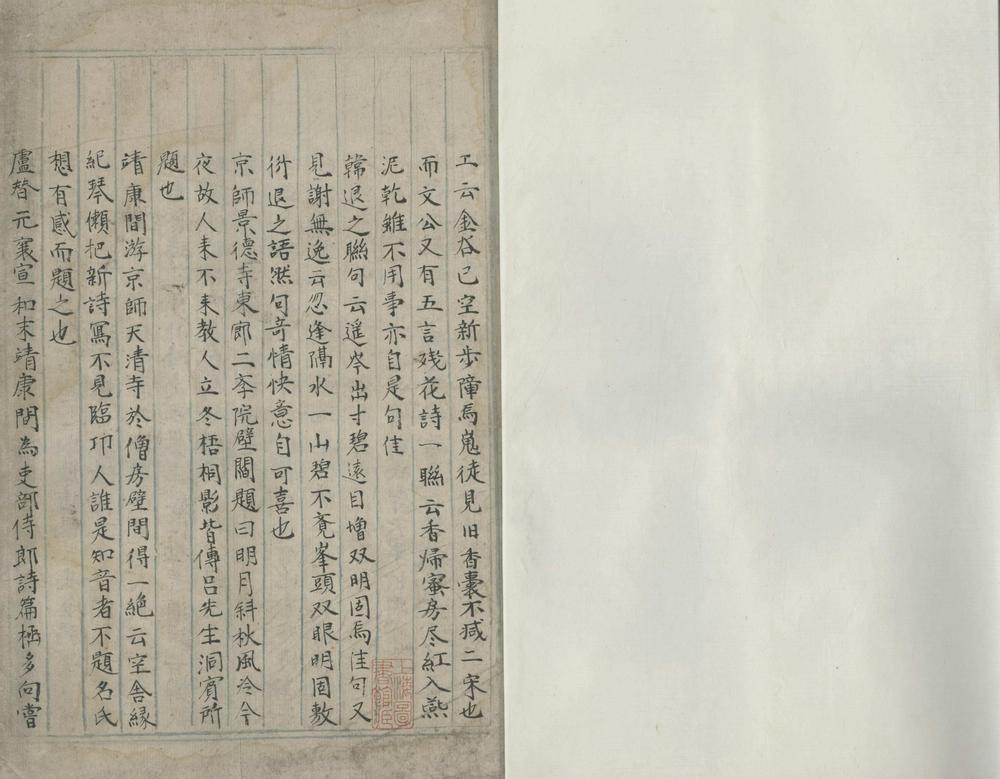 工云金谷已空新步障馬嵬徒見旧香囊不减二宋也
而文公又有五言残花詩一聮云香帰蜜房尽紅入燕
泥乾雖不用事亦自是句佳
韓退之聮句云遥岑出寸碧遠目增双明固為佳句又
見謝無逸云忽逢隔水一山碧不覔峯頭双眼明固敷
衍退之語然句竒情快意自可喜也
京師景德寺東郎二李院壁間題曰明月斜秋風冷今
夜故人来不来教人立尽梧桐影皆傳吕先生洞賓所
題也
靖康間游京師天清寺於僧房壁間得一絶云空舍緑
綺琴懶把新詩寫不見臨邛人誰是知音者不題名氏
想有感而題之也
盧襄元宣和末靖康間為吏部侍郎詩篇極多向嘗
上海圖書館藏